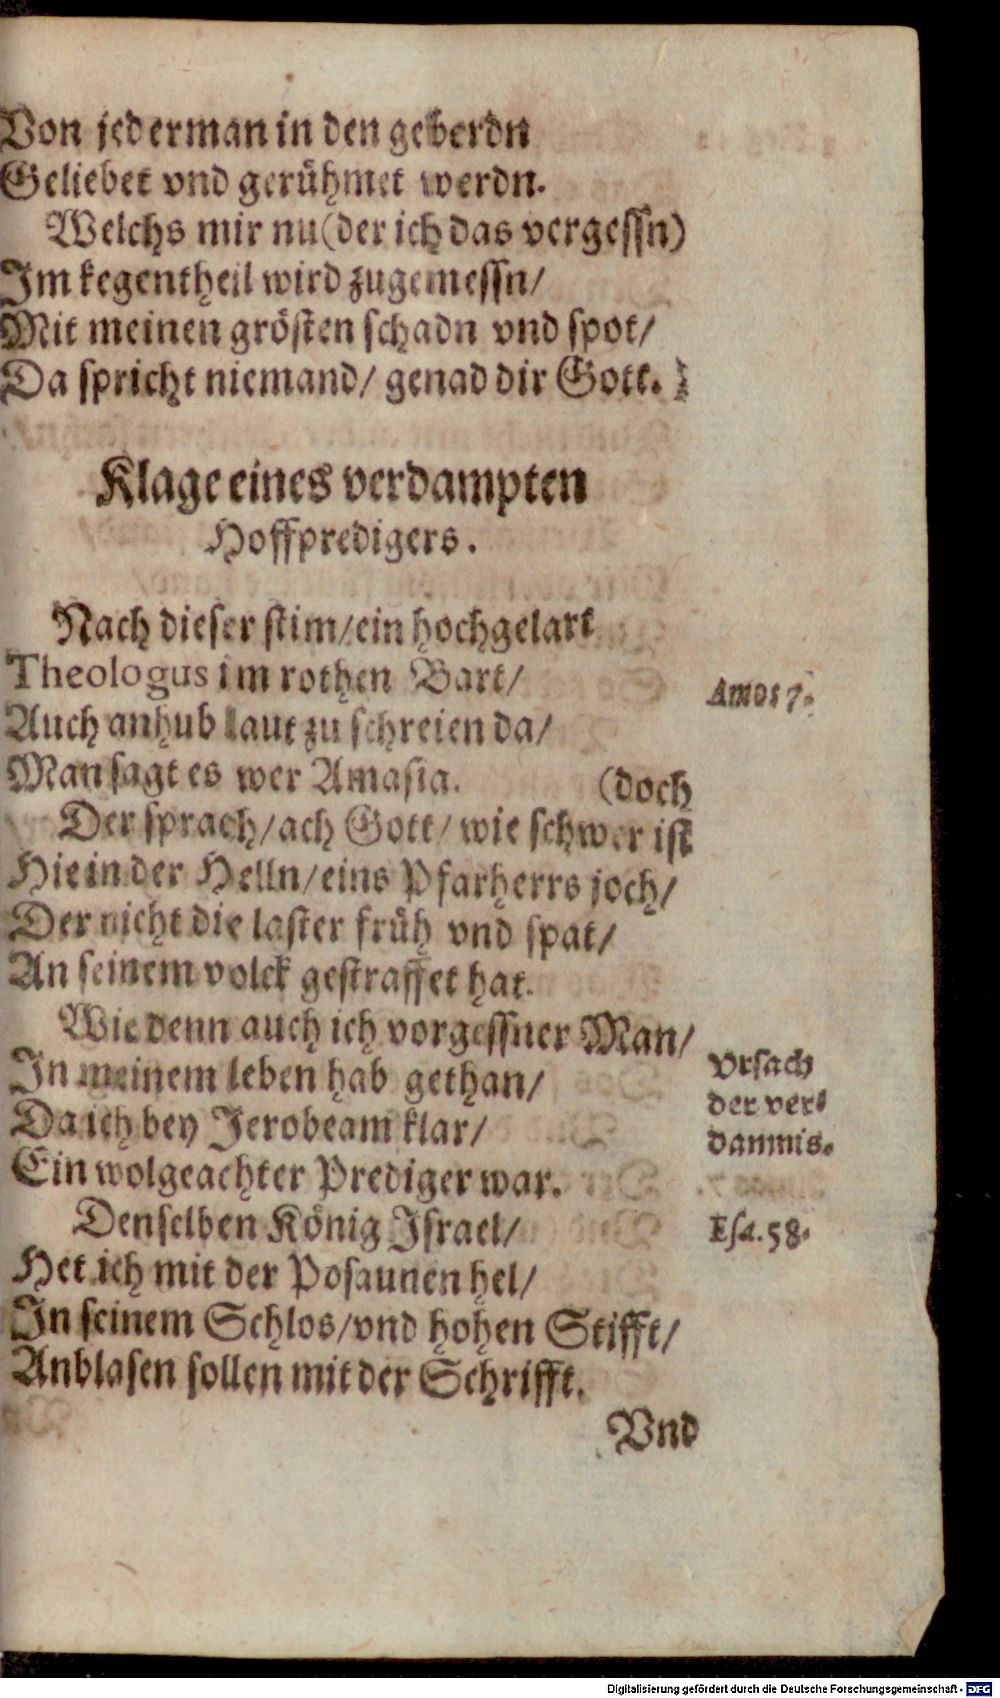 Von jederman in den geberdn
Geliebet vnd gerühmet werdn.
Welchs mir nu (der ich das vergessn)
Im kegentheil wird zugemessn/
Mit meinen grösten schadn vnd spot/
Da spricht niemand/ genad dir Gott.
Klage eines verdampten
Hoffpredigers.
Nach dieser stim/ein hochgelart
Theologus im rothen Bart/
Amos 7.
Auch anhub laut zu schreien da/
Man sagt es wer Amasia.
(doch
Der sprach/ach Gott/ wie schwer ist
Hie in der Helln/eins Pfarherrs joch/
Der nicht die laster früh vnd spat/
An seinem volck gestraffet hat.
Wie denn auch ich vorgessner Man/
In meinem leben hab gethan/
Vrsach
der ver-
damnis.
Da ich bey Jerobeam klar/
Ein wolgeachter Prediger war.
Denselben König Israel/
Esa. 58.
Het ich mit der Posaunen hel/
In seinem Schlos/vnd hohen Stifft/
Anblasen sollen mit der Schrifft.
Vnd
Digitalisierung gefördert durch die Deutsche Forschungsgemeinschaft - DFG